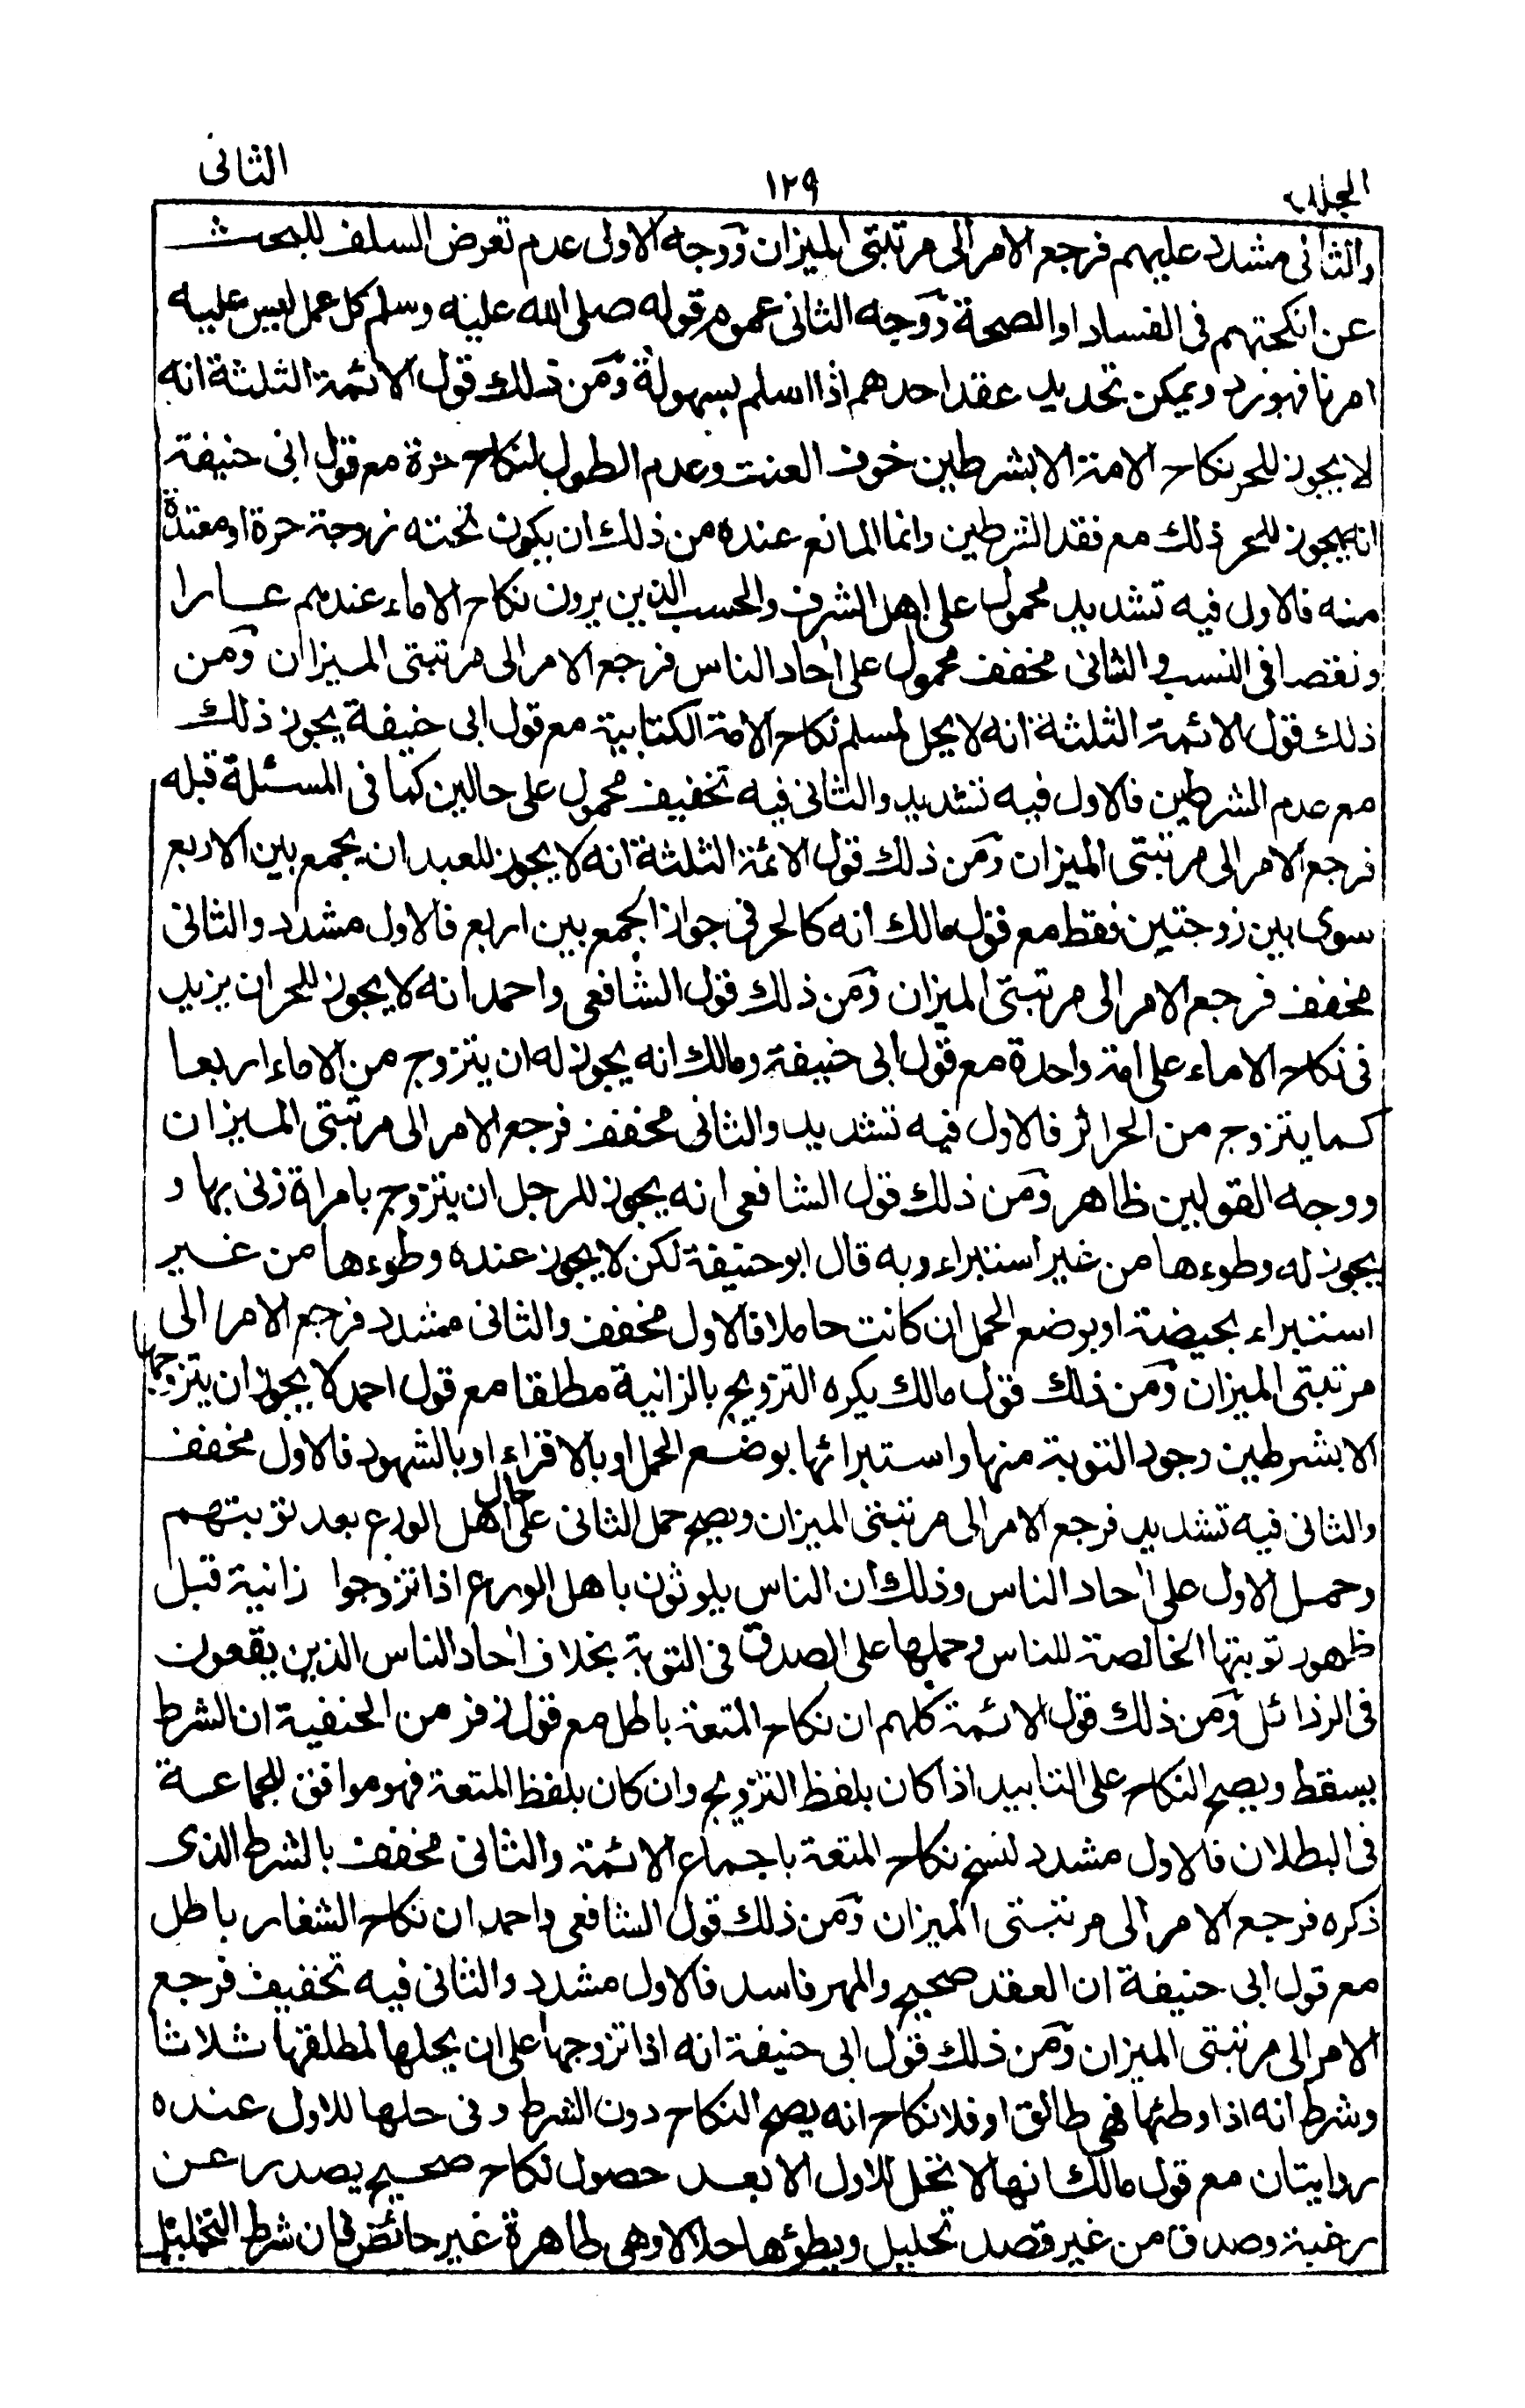 المجلد ١٢٩ الثانى
والثانى مشدد عليهم فرجع الامر الى مرتبتى الميزان ووجه الاولى عدم تعرض السلف للبحث
عن انكحتهم فى الفساد او الصحة ووجه الثانى عموم قوله صلى الله عليه وسلم كل عمل ليس عليه
امرنا فهورد ويمكن تجديد عقد احدهم اذا اسلم بسهولة ومن ذلك قول الائمة الثلثة انه
لا يجوز للحر نكاح الامة الا بشرطين خوف العنت وعدم الطول لنكاح حرة مع قول ابى حنيفة
انه يجوز للحر ذلك مع فقد الشرطين وانما المانع عنده من ذلك ان يكون تحته زوجة حرة او معتدة
منه فالاول فيه تشديد محمول على اهل الشرف والحسب الذين يرون نكاح الاماء عندهم عارا
ونقصا فى النسب والثانى مخفف محمول على احاد الناس فرجع الامر الى مرتبتى الميزان ومن
ذلك قول الائمة الثلثة انه لا يحل لمسلم نكاح الامة الكتابية مع قول ابى حنيفة يجوز ذلك
مع عدم الشرطين فالاول فيه تشديد والثانى فيه تخفيف محمول على حالين كما فى المسئلة قبله
فرجع الامر الى مرتبتى الميزان ومن ذلك قول الائمة الثلثة انه لا يجوز للعبد ان يجمع بين الاربع
سوى بين زوجتين فقط مع قول مالك انه كالحر فى جواز الجمع بين اربع فالاول مشدد والثانى
مخفف فرجع الامر الى مرتبتى الميزان ومن ذلك قول الشافعى واحمد انه لا يجوز للحر ان يزيد
فى نكاح الاماء على امة واحدة مع قول ابى حنيفة ومالك انه يجوز له ان يتزوج من الاماء اربعا
كما يتزوج من الحرائر فالاول فيه تشديد والثانى مخفف فرجع الامر الى مرتبتى الميزان
ووجه القولين ظاهر ومن ذلك قول الشافعى انه يجوز للرجل ان يتزوج بامراة زنى بها و
يجوز له وطوءها من غير استبراء وبه قال ابو حنيفة لكن لا يجوز عنده وطوءها من غير
استبراء بحيضة او بوضع الحمل ان كانت حاملا فالاول مخفف والثانى مشدد فرجع الامر الى
مرتبتى الميزان ومن ذلك قول مالك يكره التزويج بالزانية مطلقا مع قول احمد لا يجوز ان يتزوجها
الا بشرطين وجود التوبة منها واستبرائها بوضع الحمل او بالاقراء او بالشهود فالاول مخفف
والثانى فيه تشديد فرجع الامر الى مرتبتى الميزان ويصح حمل الثانى على حال اهل الورع بعد توبتهم
وحمل الاول على احاد الناس وذلك ان الناس يلوثون باهل الورع اذا تزوجوا زانية قبل
ظهور توبتها الخالصة للناس وحملها على الصدق فى التوبة بخلاف احاد الناس الذين يقعون
فى الرذائل ومن ذلك قول الائمة كلهم ان نكاح المتعة باطل مع قول زفر من الحنفية ان الشرط
يسقط ويصح النكاح على التابيد اذا كان بلفظ التزويج وان كان بلفظ المتعة فهو موافق للجماعة
فى البطلان فالاول مشدد لنسخ نكاح المتعة باجماع الائمة والثانى مخفف بالشرط الذى
ذكره فرجع الامر الى مرتبتى الميزان ومن ذلك قول الشافعى واحمد ان نكاح الشغار باطل
مع قول ابى حنيفة ان العقد صحيح والمهر فاسد فالاول مشدد والثانى فيه تخفيف فرجع
الامر الى مرتبتى الميزان ومن ذلك قول ابى حنيفة انه اذا تزوجها على ان يحلها لمطلقها ثلاثا
وشرط انه اذا وطئها فهى طالق او فلا نكاح انه يصح النكاح دون الشرط وفى حلها للاول عنده
روايتان مع قول مالك انها لا تحل للاول الا بعد حصول نكاح صحيح يصدر عن
رغبة وصدق من غير قصد تحليل ويطؤها حلالا وهى طاهرة غير حائض فان شرط التحليل